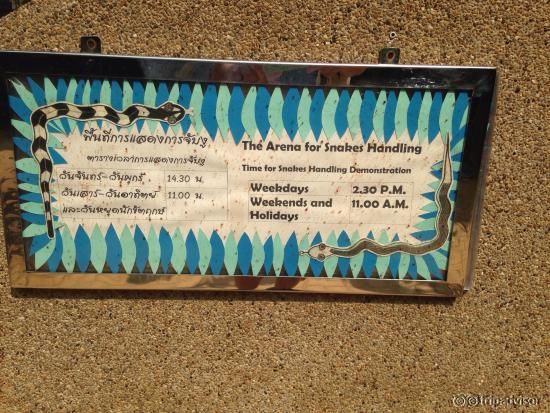 พื้นที่การแสดงการจับงู
ตารางเวลาการแสดงการจับงู
วันจันทร์-วันศุกร์ 14.30 น.
วันเสาร์-วันอาทิตย์ 11.00 น.
และวันหยุดนักขัตฤกษ์
The Arena for Snakes Handling
Time for Snakes Handling Demonstration
Weekdays 2.30 P.M.
Weekends and 11.00 A.M.
Holidays
© tripadvisor